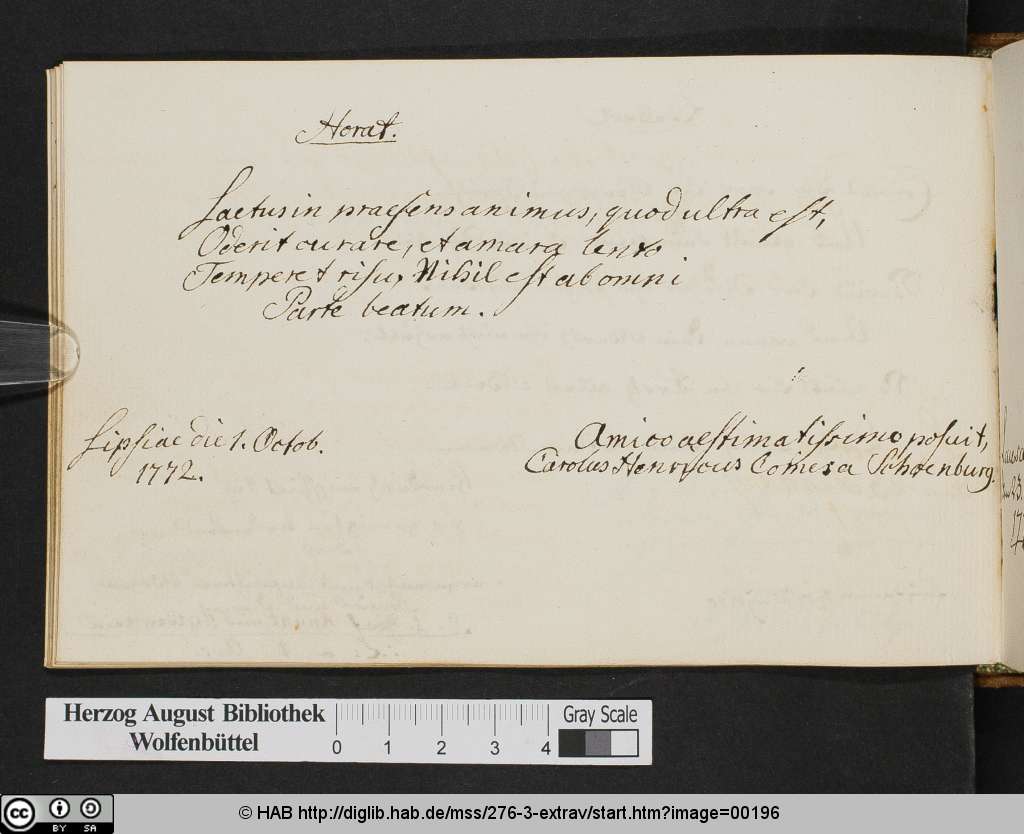 Horat.
Laetus in praesens animus, quod ultra est,
Oderit curare, et amara lento
Temperet risu, Nihil est ab omni
Parte beatum.
Lipsiae die 1. Octob.
1772.
Amico aestimatissimo posuit,
Carolus Henrycus Comes a Schoenburg.
Herzog August Bibliothek
Wolfenbüttel
0 1 2 3 4
Gray Scale
cc BY SA
© HAB http://diglib.hab.de/mss/276-3-extrav/start.htm?image=00196